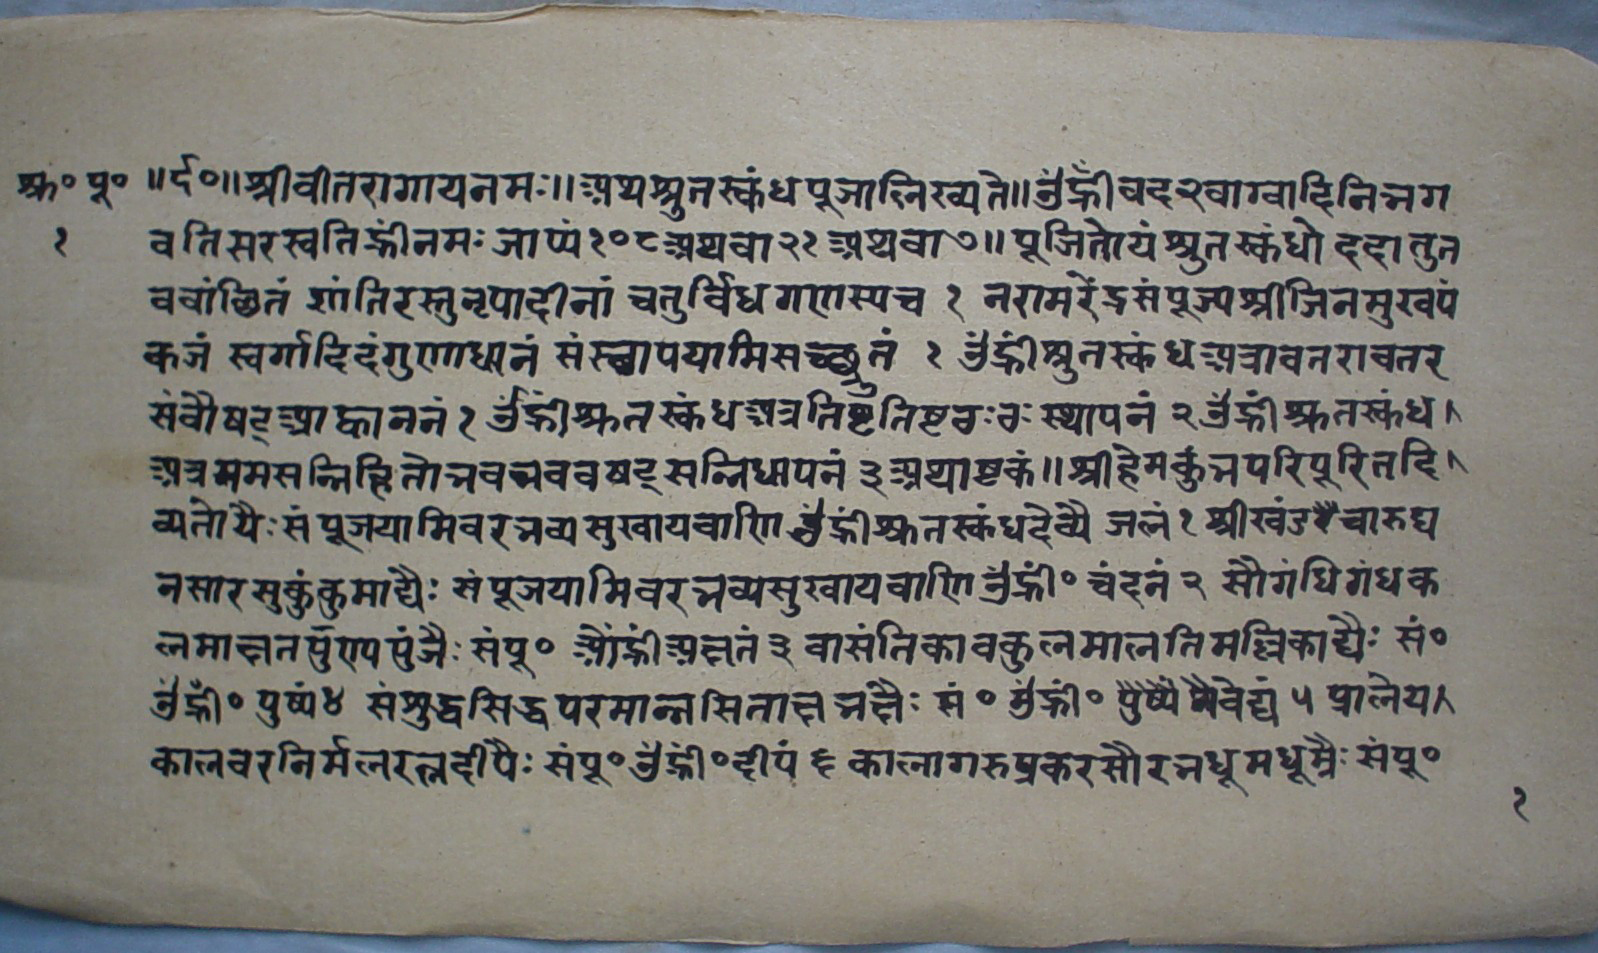 श्रु० पू० ॥र्द०॥श्रीवीतरागायनमः॥अथश्रुतस्कंधपूजालिख्यते॥उँह्रीँवद२वाग्वादिनिभग
१ वतिसरस्वतिह्रींनमः जाप्यं१०८अथवा२१अथवा७॥पूजितोयंश्रुतस्कंधो ददातुत
ववांछितं शांतिरस्तुनृपादीनां चतुर्विधगणस्यच १ नरामरेंद्रसंपूज्यश्रीजिनमुखपं
कजं स्वर्गादिदंगुणाधानं संस्थापयामिसच्छ्रुतं १ उँह्रींश्रुतस्कंधअत्रावतरावतर
संवौषट्आह्वाननं१ उँह्रींश्रुतस्कंधअत्रतिष्टतिष्टठःठः स्थापनं २उँह्रींश्रुतस्कंध
अत्रममसन्निहितोभवभववषट्सन्निधापनं ३अथाष्टकं॥श्रीहेमकुंभपरिपूरितदि
व्यतोयैःसंपूजयामिवरभव्यसुखायवाणि उँह्रींश्रुतस्कंधदेव्यै जलं१ श्रीखंडचारुघ
नसारसुकुंकुमाद्यैः संपूजयामिवरभव्यसुखायवाणि उँह्रीं० चंदनं २ सौगंधिगंधक
लमाक्षतपुंण्यपुंजैः संपू० ओंह्रींअक्षतं ३ वासंतिकावकुलमालतिमल्लिकाद्यैः सं०
उँह्रीं० पुष्पं४ संशुद्धसिद्धपरमान्नसिताक्षभक्षैः सं० उँह्रीं० नैवेद्यं ५ प्रालेय
कालवरनिर्मलरत्नदीपैः संपू०उँह्रीं०दीपं ६ कालागरुप्रकरसौरभधूमधूम्रैः संपू०
१